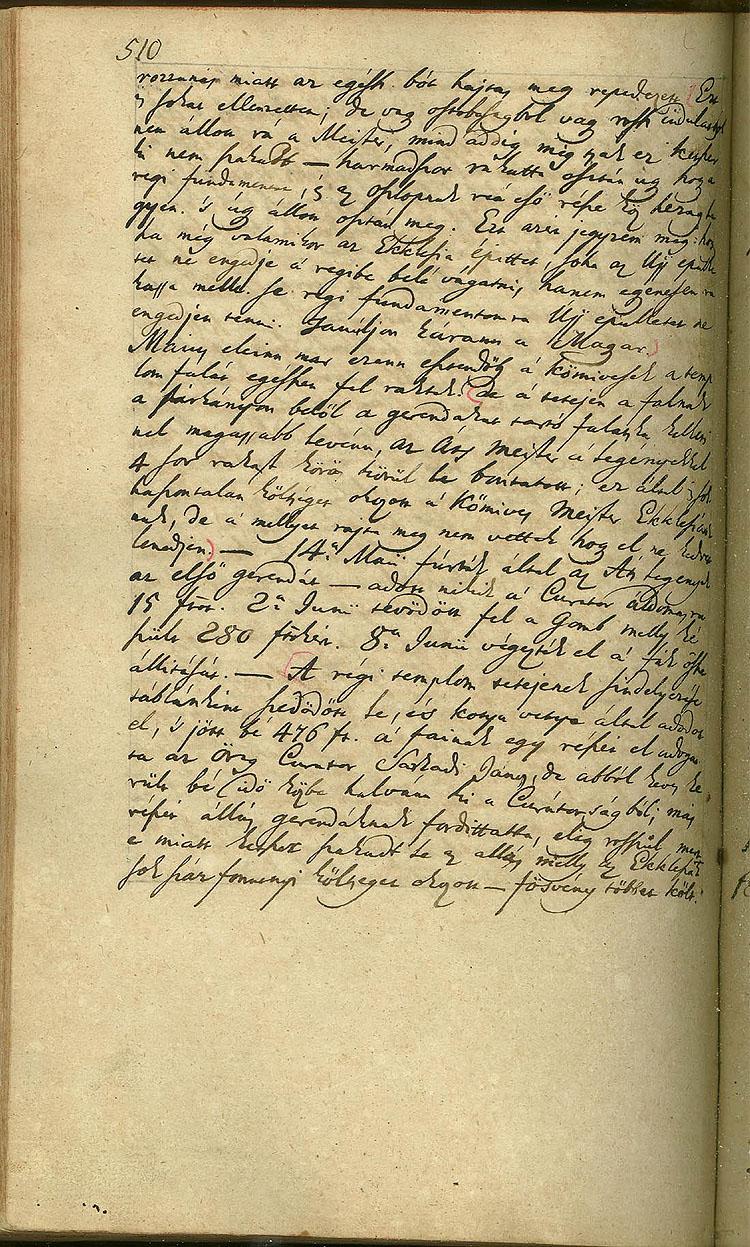 510
miatt az egész bót hajtás meg repedezett. Ezt
sokat ellenzettem, de vagy ostobaságból vagy rossz indulatból
nem állott rá a Meister, mind addig míg csak ez
ki nem szakadt — harmadszor rakatta osztán úgy hogy a
régi fundamentu
gyen. 's úgy állott osztán meg. Ezt azért jegyzem meg: hogy
ha még valamikor az Ekklesia építtet, soha az Uj épüle
tet ne engedje a régibe belé vágatni, hanem egyenesen ra
kassa mellé. Se régi fundamentomra Uj épületet ne
engedjen tenni. Tanúljon kárann a Magyar.
Májusi eleinn már ezenn esztendőb. a kőmivesek a temp
lom falát egészszen fel rakták. De a tetején a falnak
a párkányon belől a gerendákat tartó falatska kelletinél
nél magassabb lévénn, az Áts Meister a legényekkel
4 sor rakást körös körűl le bontatott; ez által is sok
haszontalan költséget okozott a Kőmives Meister Ekklésiánk
nak, de a mellyet rajta meg nem vettek hogy el ne kedvet
lenedjen. — 14a Maii fúrták által az Áts legények
az első gerendát — adott nékik a' Curator áldomásra
15 frtot. 2a Junii tevődött fel a Gomb melly ké
szült 280 ftokért. 8a Junii végezték el a' fák össze
állítását. — A régi templom tetejének sindelyezése
táblánként szedődött le, és kotya vetye által adódott
el, 's jött bé 476 ft. a' fáinak egy részét el adogat
ta az Öreg Curator Sarkadi János, de abból kevés ke
rült bé (idő közbe halvánn ki a Curátorságból;) más
részét állás gerendáknak fordíttatta, elég rosszúl mert
e miatt szakadt le az állás melly az Ekklésiának
sok száz forintnyi költséget okozott — fösvény többet költ.